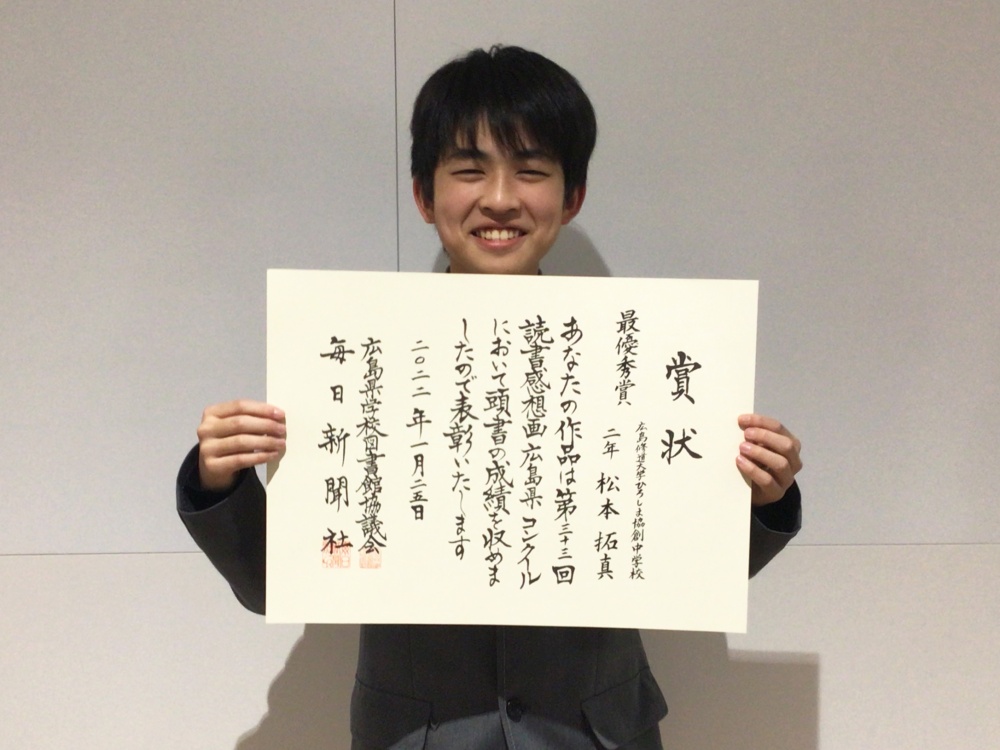 賞状
広島修道大学ひろしま協創中学校
最優秀賞
二年 松本拓真
あなたの作品は第三十三回
読書感想画広島県コンクール
において頭書の成績を収めま
したので表彰いたします
二〇二二年一月二五日
広島県学校図書館協議会
毎日新聞社